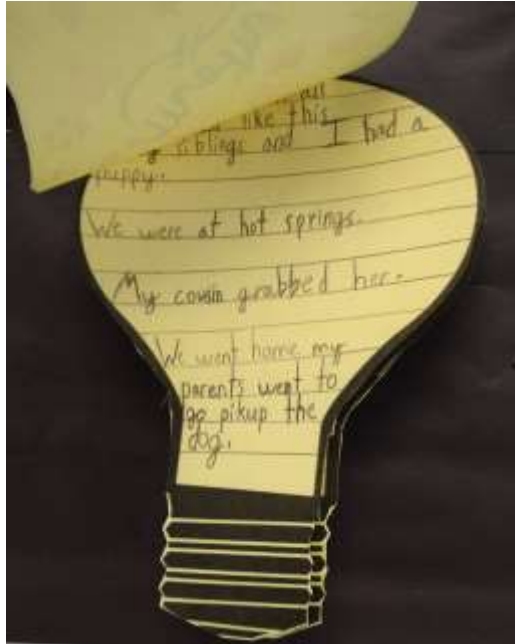 all
like this
siblings and I had a
puppy.
We were at hot springs.
My cousin grabbed her.
We went home my
parents went to
go pikup the
dog.